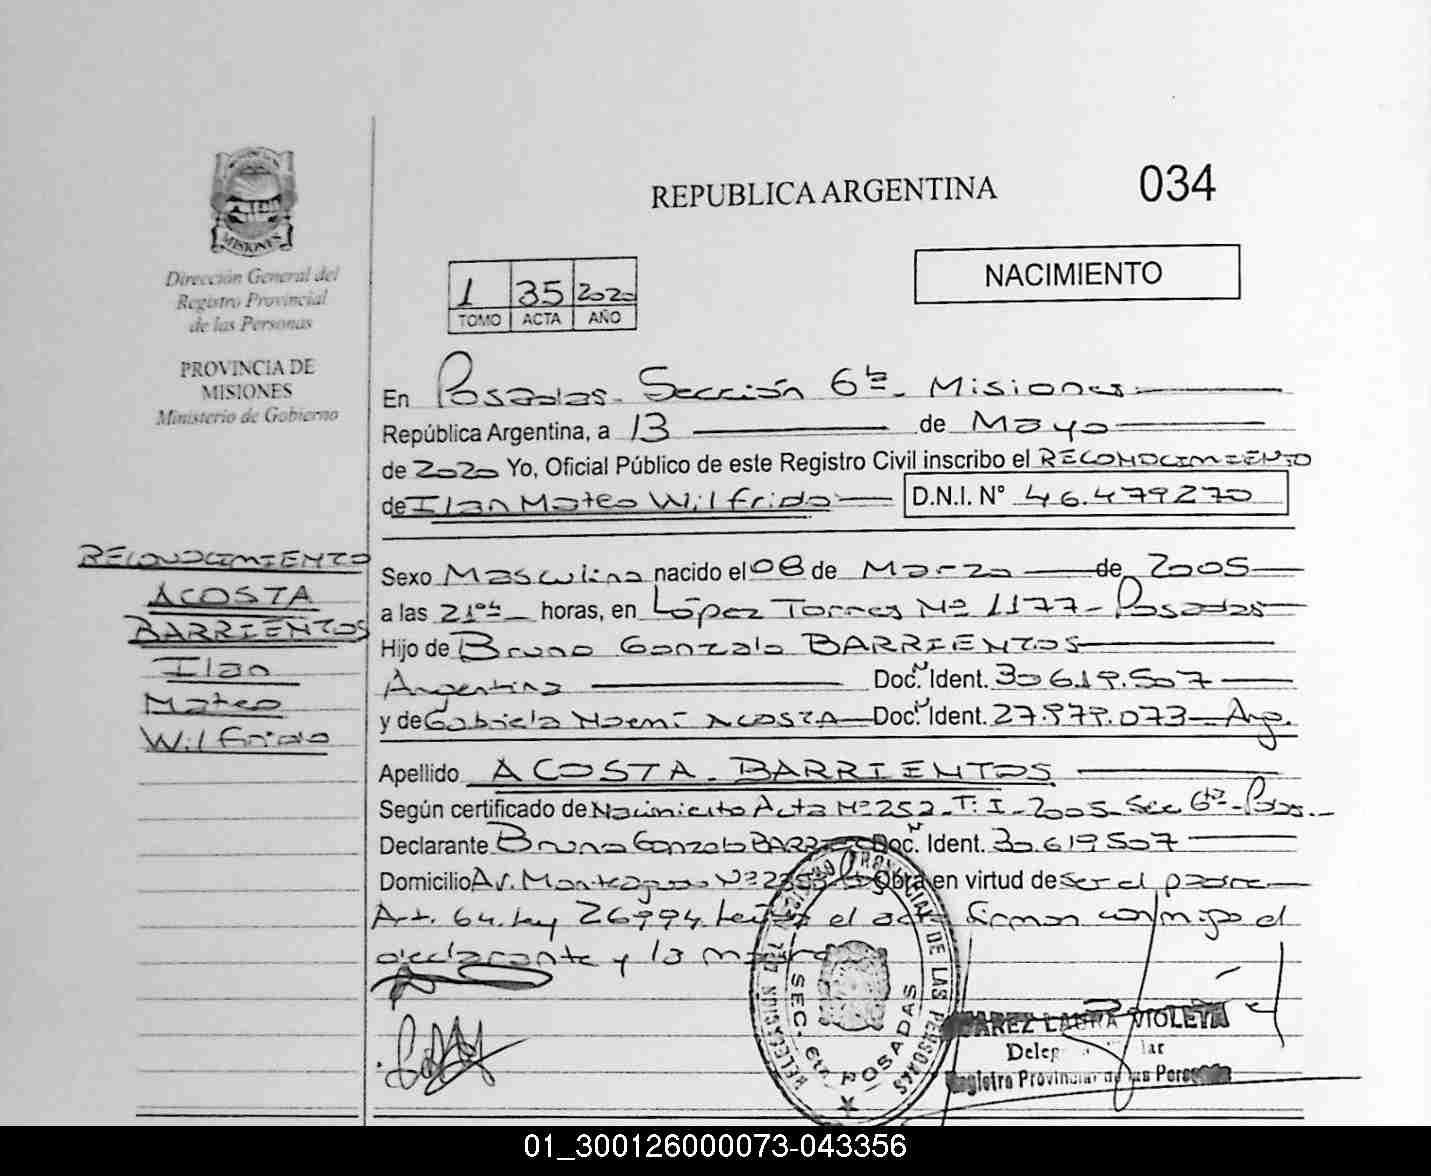 REPUBLICA ARGENTINA
034
MISIONES
Dirección General del
Registro Provincial
de las Personas
PROVINCIA DE
MISIONES
Ministerio de Gobierno
NACIMIENTO
1 35 2020
TOMO ACTA AÑO
En Posadas - Sección 6ta - Misiones
República Argentina, a 13 de Mayo
de 2020 Yo, Oficial Público de este Registro Civil inscribo el RECONOCIMIENTO
de Ilan Mateo Wilfrido D.N.I. N° 46.479270
RECONOCIMIENTO
ACOSTA
BARRIENTOS
Ilan
Mateo
Wilfrido
Sexo Masculino nacido el 08 de Marzo de 2005
a las 21 horas, en López Torres Nº 1177 - Posadas
Hijo de Bruno Gonzalo BARRIENTOS
Argentina Doc. Ident. 30619.507
y de Gabriela Noemí ACOSTA Doc. Ident. 27.979.073 - Arg.
Apellido ACOSTA BARRIENTOS
Según certificado de Nacimiento Acta Nº 252 - T: I - 2005 - Sec 6ta - Pdas.
Declarante Bruno Gonzalo Doc. Ident. 30.619507
Domicilio Av. Nº Obra en virtud de ser el padre
Art. 64. Ley 26994. el firman conmigo el
declarante y la
REGISTRO PROVINCIAL DE LAS PERSONAS
SEC. 6ta POSADAS
LAURA VIOLETA
Registro Provincial de las Personas
01_300126000073-043356